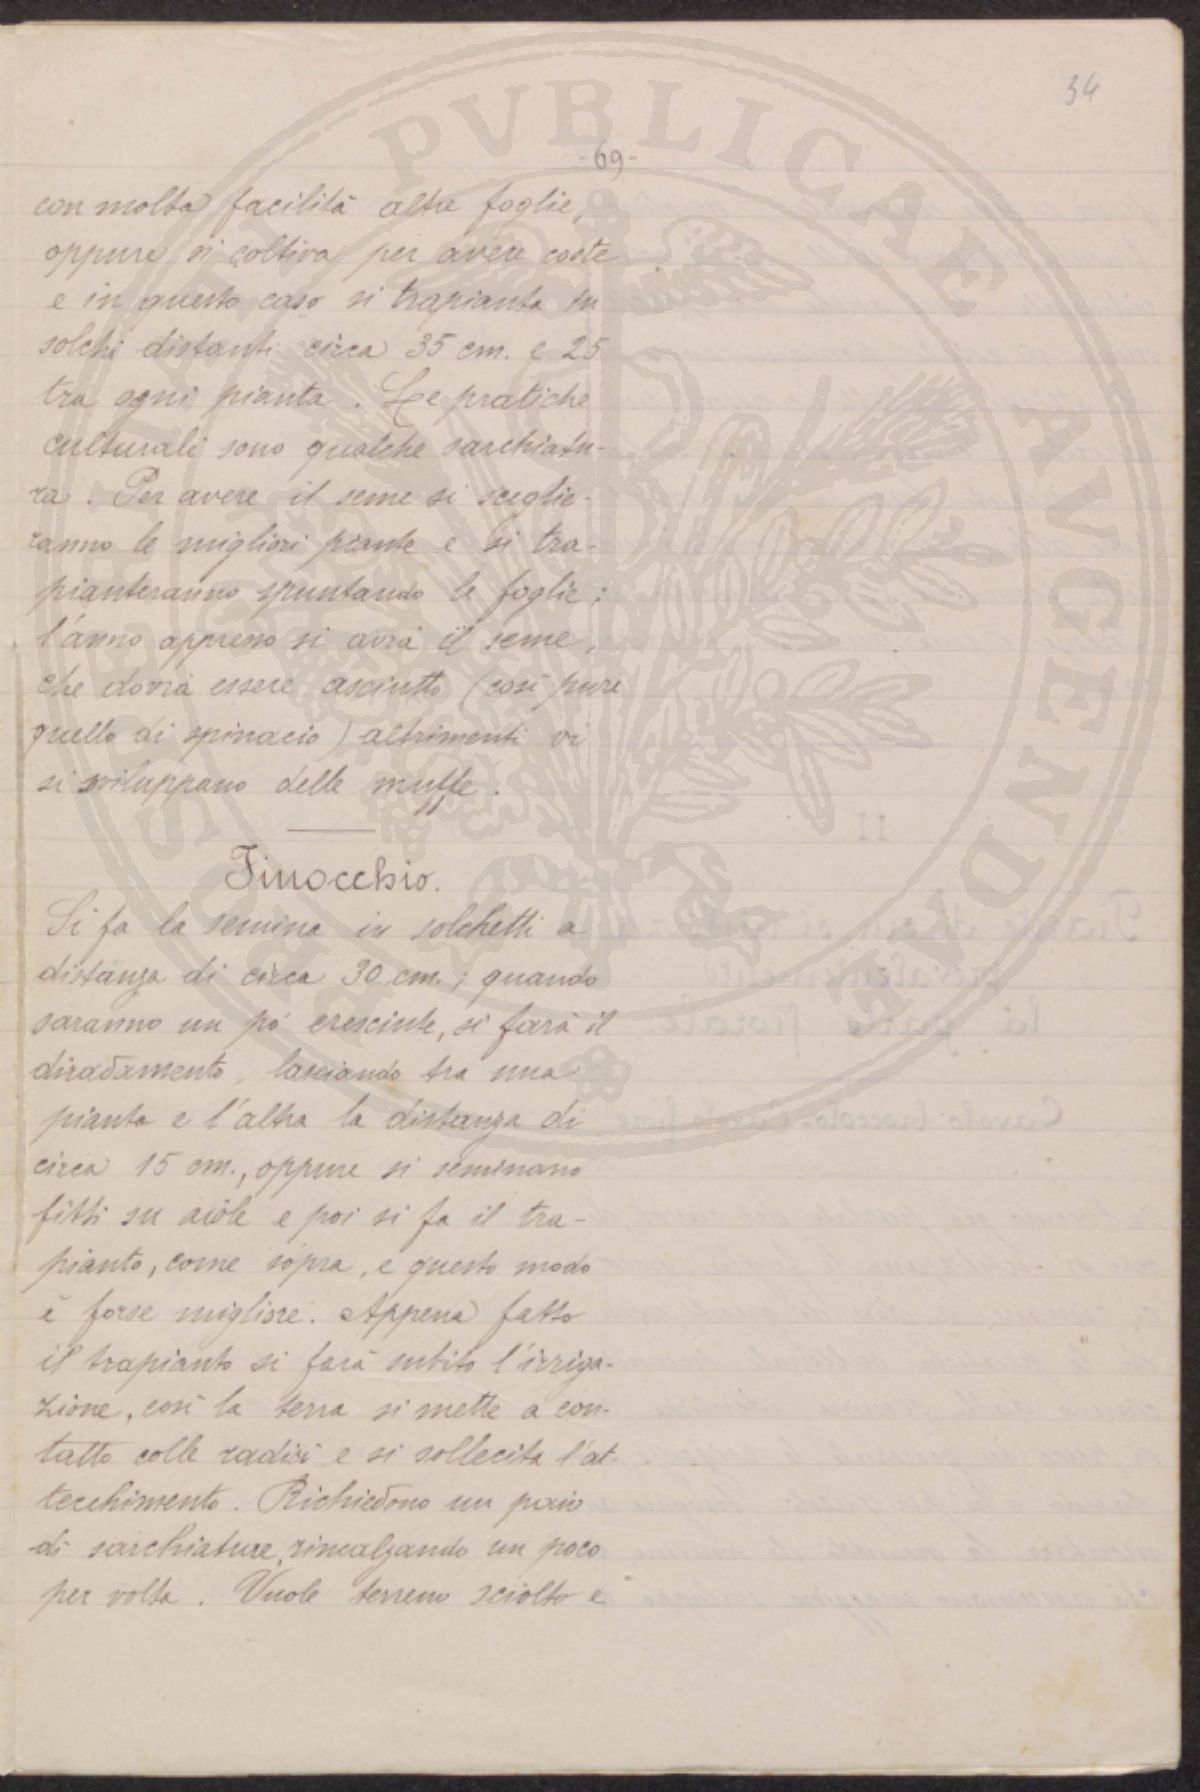 34
-69-
con molta facilità altre foglie,
oppure si coltiva per avere coste
e in questo caso si trapianta in
solchi distanti circa 35 cm. e 25
tra ogni pianta. Le pratiche
culturali sono qualche sarchiatu-
ra. Per avere il seme si sceglie-
ranno le migliori piante e si tra-
pianteranno spuntando le foglie;
l'anno appresso si avrà il seme,
che dovrà essere asciutto (così pure
quello di spinacio) altrimenti vi
si sviluppano delle muffe.
Finocchio.
Si fa la semina in solchetti a
distanza di circa 30 cm.; quando
saranno un pò cresciute, si farà il
diradamento, lasciando tra una
pianta e l'altra la distanza di
circa 15 cm., oppure si seminano
fitti su aiole e poi si fa il tra-
pianto, come sopra, e questo modo
è forse migliore. Appena fatto
il trapianto si farà subito l'irriga-
zione, così la terra si mette a con-
tatto colle radici e si sollecita l'at-
tecchimento. Richiedono un paio
di sarchiature, rincalzando un poco
per volta. Vuole terreno sciolto e
PVBLICAE AVGENDAE